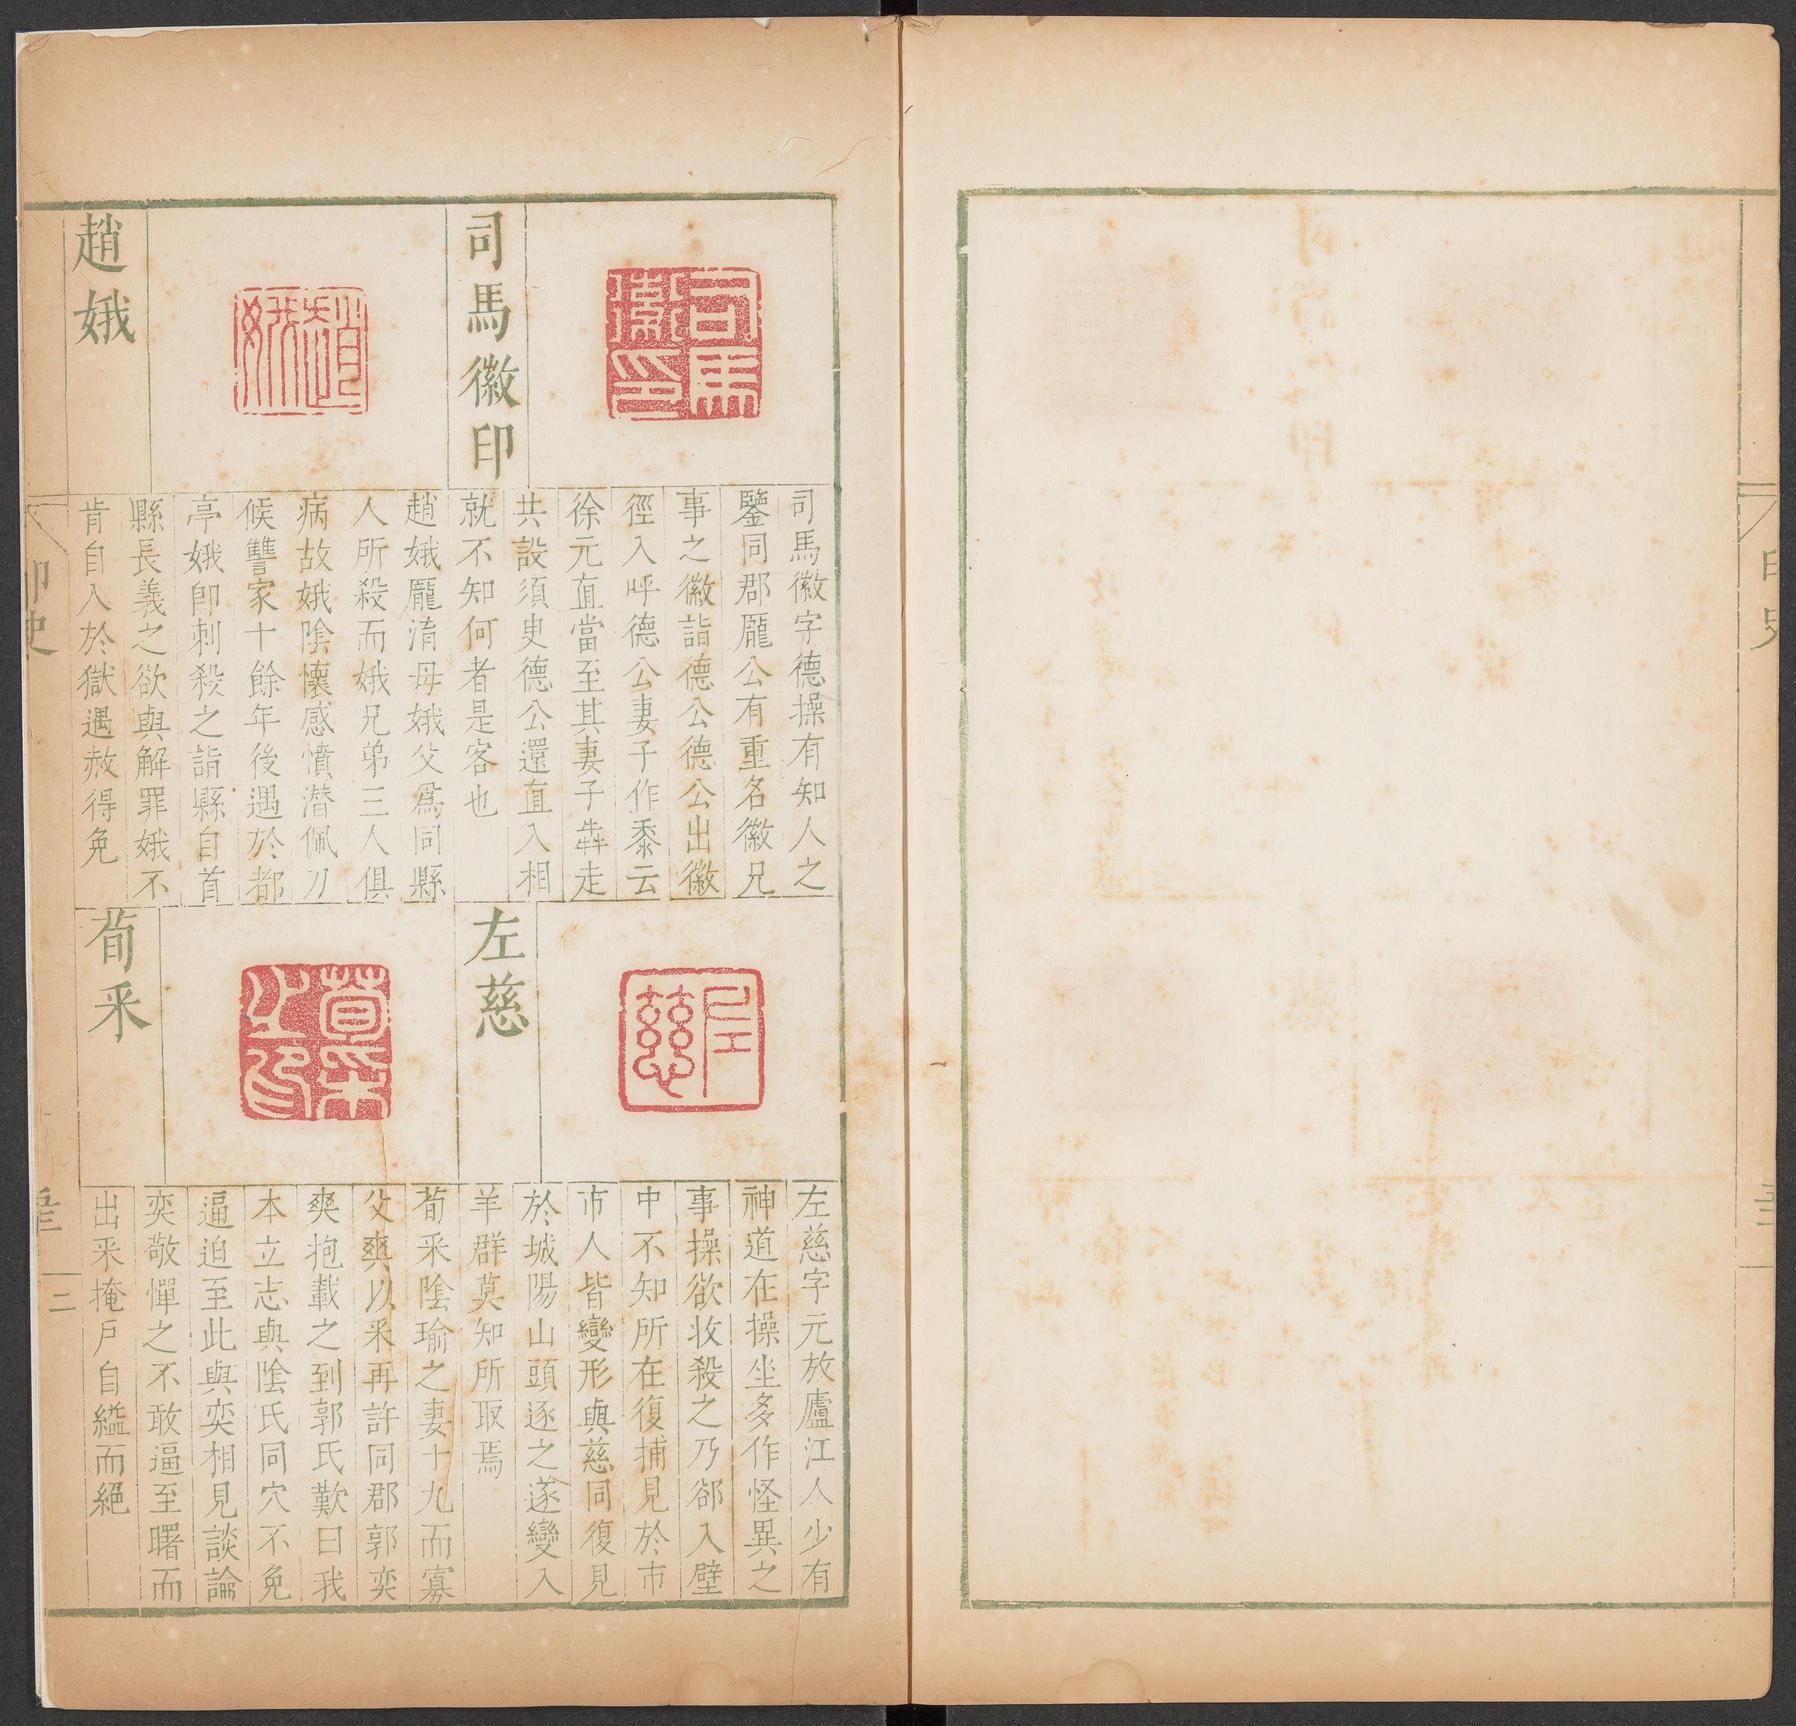 司馬徽印
司馬徽印
司馬徽字德操有知人之
鑒同郡龐公有重名徽兄
事之徽詣德公德公出徽
徑入呼德公妻子作黍云
徐元直當至其妻子犇走
共設須臾德公還直入相
就不知何者是客也
趙娥
趙娥
趙娥龐淯母娥父爲同縣
人所殺而娥兄弟三人俱
病故娥陰懷感憤潜佩刀
候讐家十餘年後遇於都
亭娥即刺殺之詣縣自首
縣長義之欲與解罪娥不
肯自入於獄遇赦得免
左慈
左慈
左慈字元放廬江人少有
神道在操坐多作怪異之
事操欲收殺之乃郤入壁
中不知所在復捕見於市
市人皆變形與慈同復見
於城陽山頭逐之遂變入
羊群莫知所取焉
荀采之印
荀采
荀采陰瑜之妻十九而寡
父爽以采再許同郡郭奕
爽抱載之到郭氏歎曰我
本立志與陰氏同穴不免
逼迫至此與奕相見談論
奕敬憚之不敢逼至曙而
出采掩戶自縊而絕
印史
三
印史